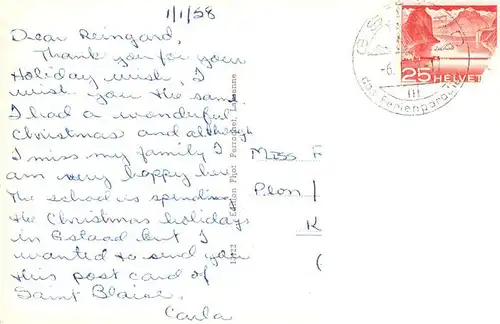 1/1/58
Dear Reingard,
Thank you for your
Holiday wish, I
wish you the same.
I had a wonderful
Christmas and although
I miss my family I
am very happy here.
The school is spending
the Christmas holidays
in Gstaad but I
wanted to send you
this post card of
Saint Blaise.
Carla
Edition Phot Perrochet, Lausanne
Miss
Plon /
K
(
25 HELVET
GST
-6.
III
das Ferienparadi